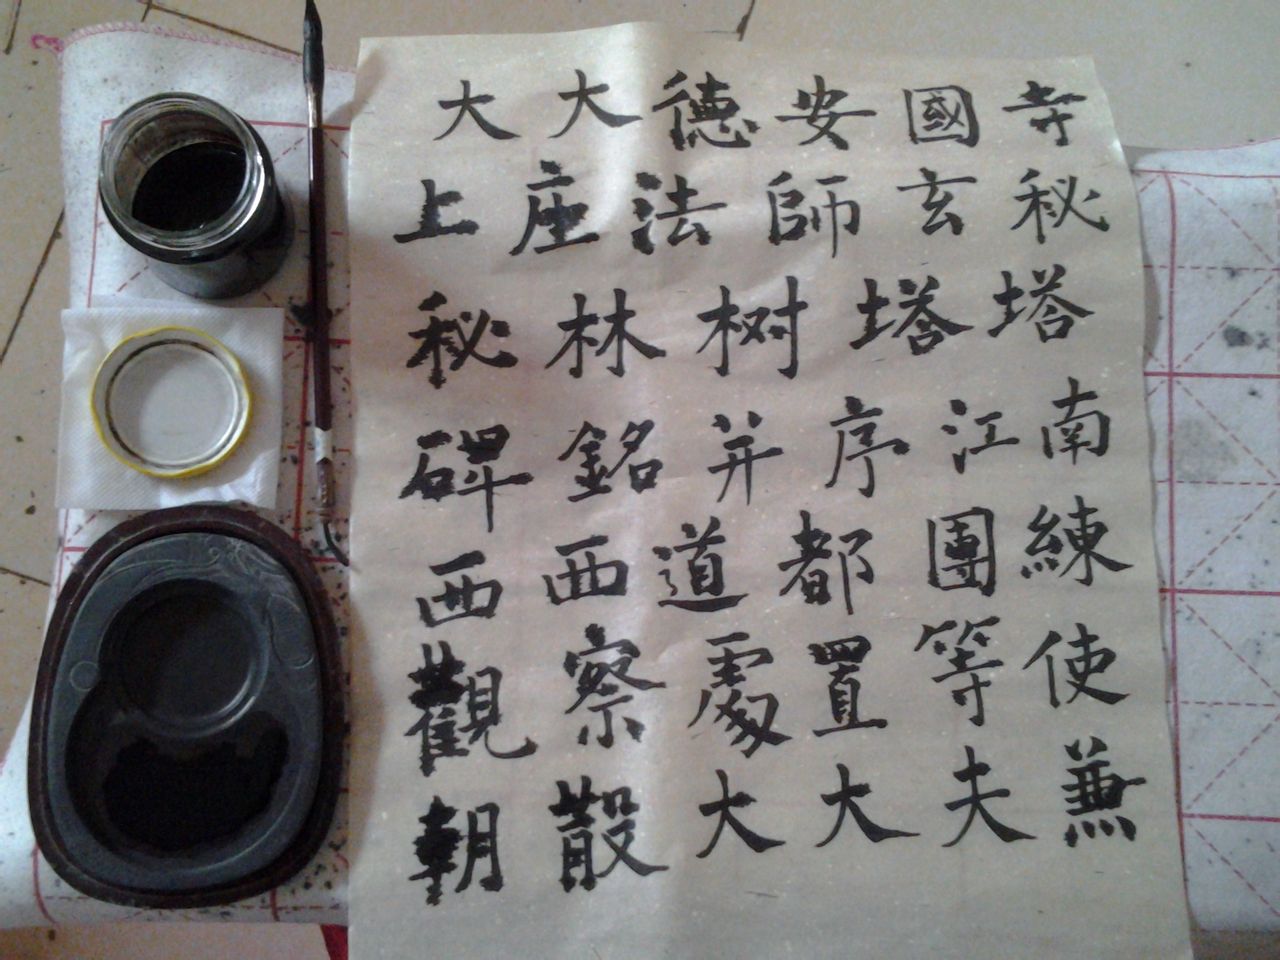 大大德安國寺
上座法師玄秘
秘林树塔塔
碑銘并序江南
西西道都團練
觀察處置等使
朝散大大夫兼